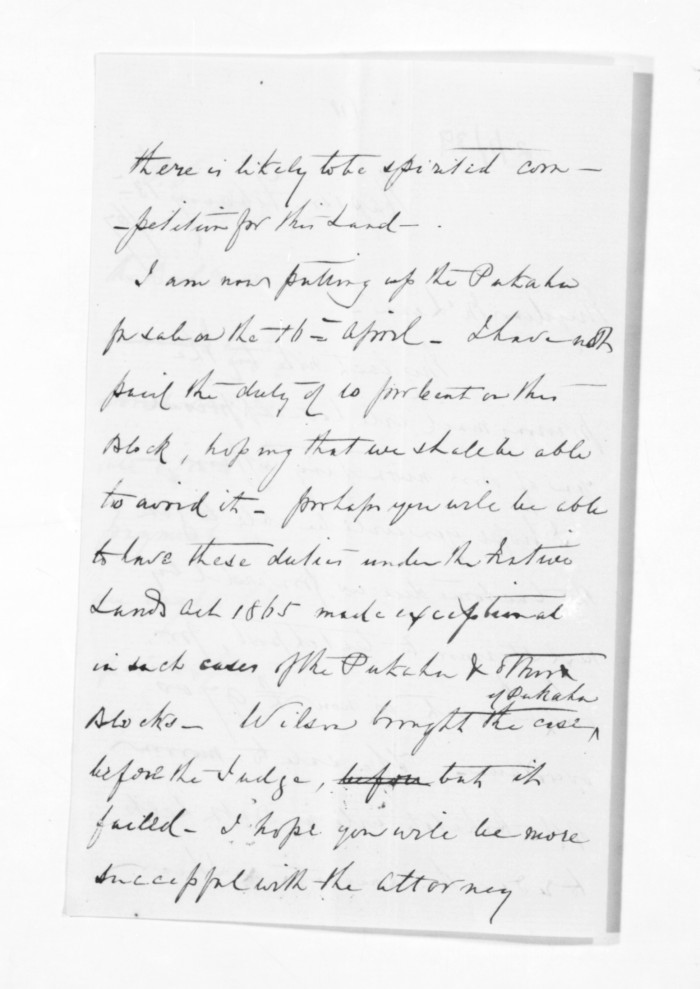 there is likely to be spirited com-
-petition for this Land- .
I am now putting up the Pukahu
for sale on the 16th April - I have not
paid the duty of 10 per Cent on this
Block, hoping that we shall be able
to avoid it - perhaps you will be able
to have these duties under the Native
Lands Act 1865 made exceptional
in such cases of the Pukahu & other
of Pukahu
Blocks - Wilson brought the case,
before the Judge, before but it
failed - I hope you will be more
successful with the Attorney